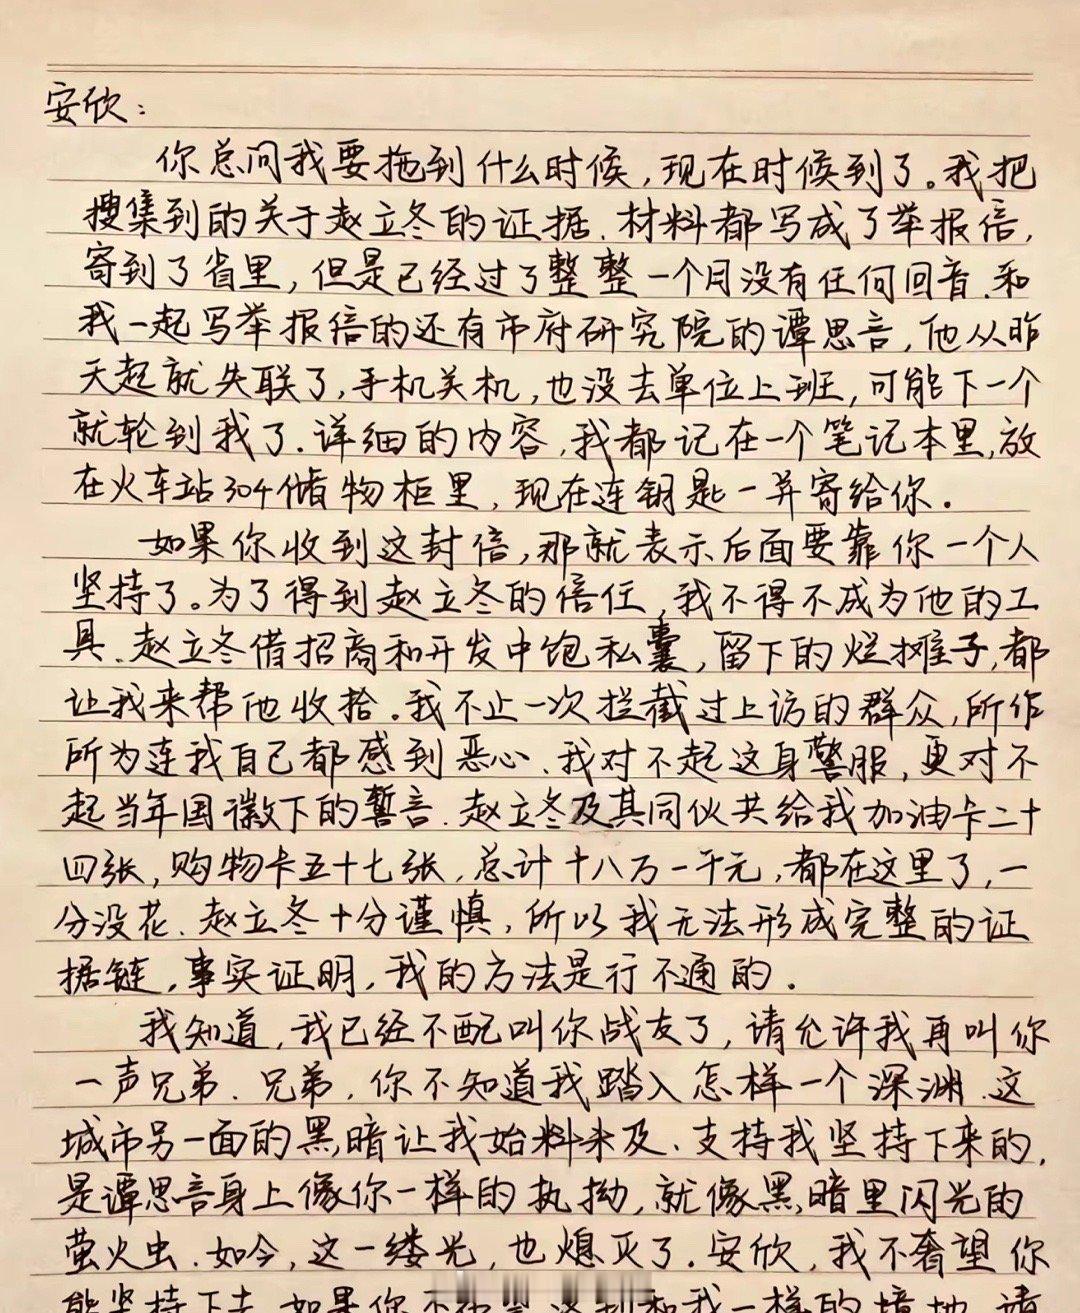 安欣：
你总问我要拖到什么时候，现在时候到了。我把
搜集到的关于赵立冬的证据、材料都写成了举报信，
寄到了省里，但是已经过了整整一个月没有任何回音、和
我一起写举报信的还有市府研究院的谭思言，他从昨
天起就失联了，手机关机，也没去单位上班，可能下一个
就轮到我了、详细的内容，我都记在一个笔记本里，放
在火车站304储物柜里，现在连钥匙一并寄给你。
如果你收到这封信，那就表示后面要靠你一个人
坚持了。为了得到赵立冬的信任，我不得不成为他的工
具、赵立冬借招商和开发中饱私囊，留下的烂摊子，都
让我来帮他收拾。我不止一次拦截过上访的群众，所作
所为连我自己都感到恶心、我对不起这身警服，更对不
起当年国徽下的誓言、赵立冬及其同伙共给我加油卡二十
四张，购物卡五十七张，总计十八万一千元，都在这里了，一
分没花、赵立冬十分谨慎，所以我无法形成完整的证
据链，事实证明，我的方法是行不通的。
我知道，我已经不配叫你战友了，请允许我再叫你
一声兄弟、兄弟，你不知道我踏入怎样一个深渊、这
城市另一面的黑暗让我始料未及、支持我坚持下来的，
是谭思言身上像你一样的执拗，就像黑暗里闪光的
萤火虫、如今，这一缕光，也熄灭了。安欣，我不奢望你
能坚持下去，如果你不